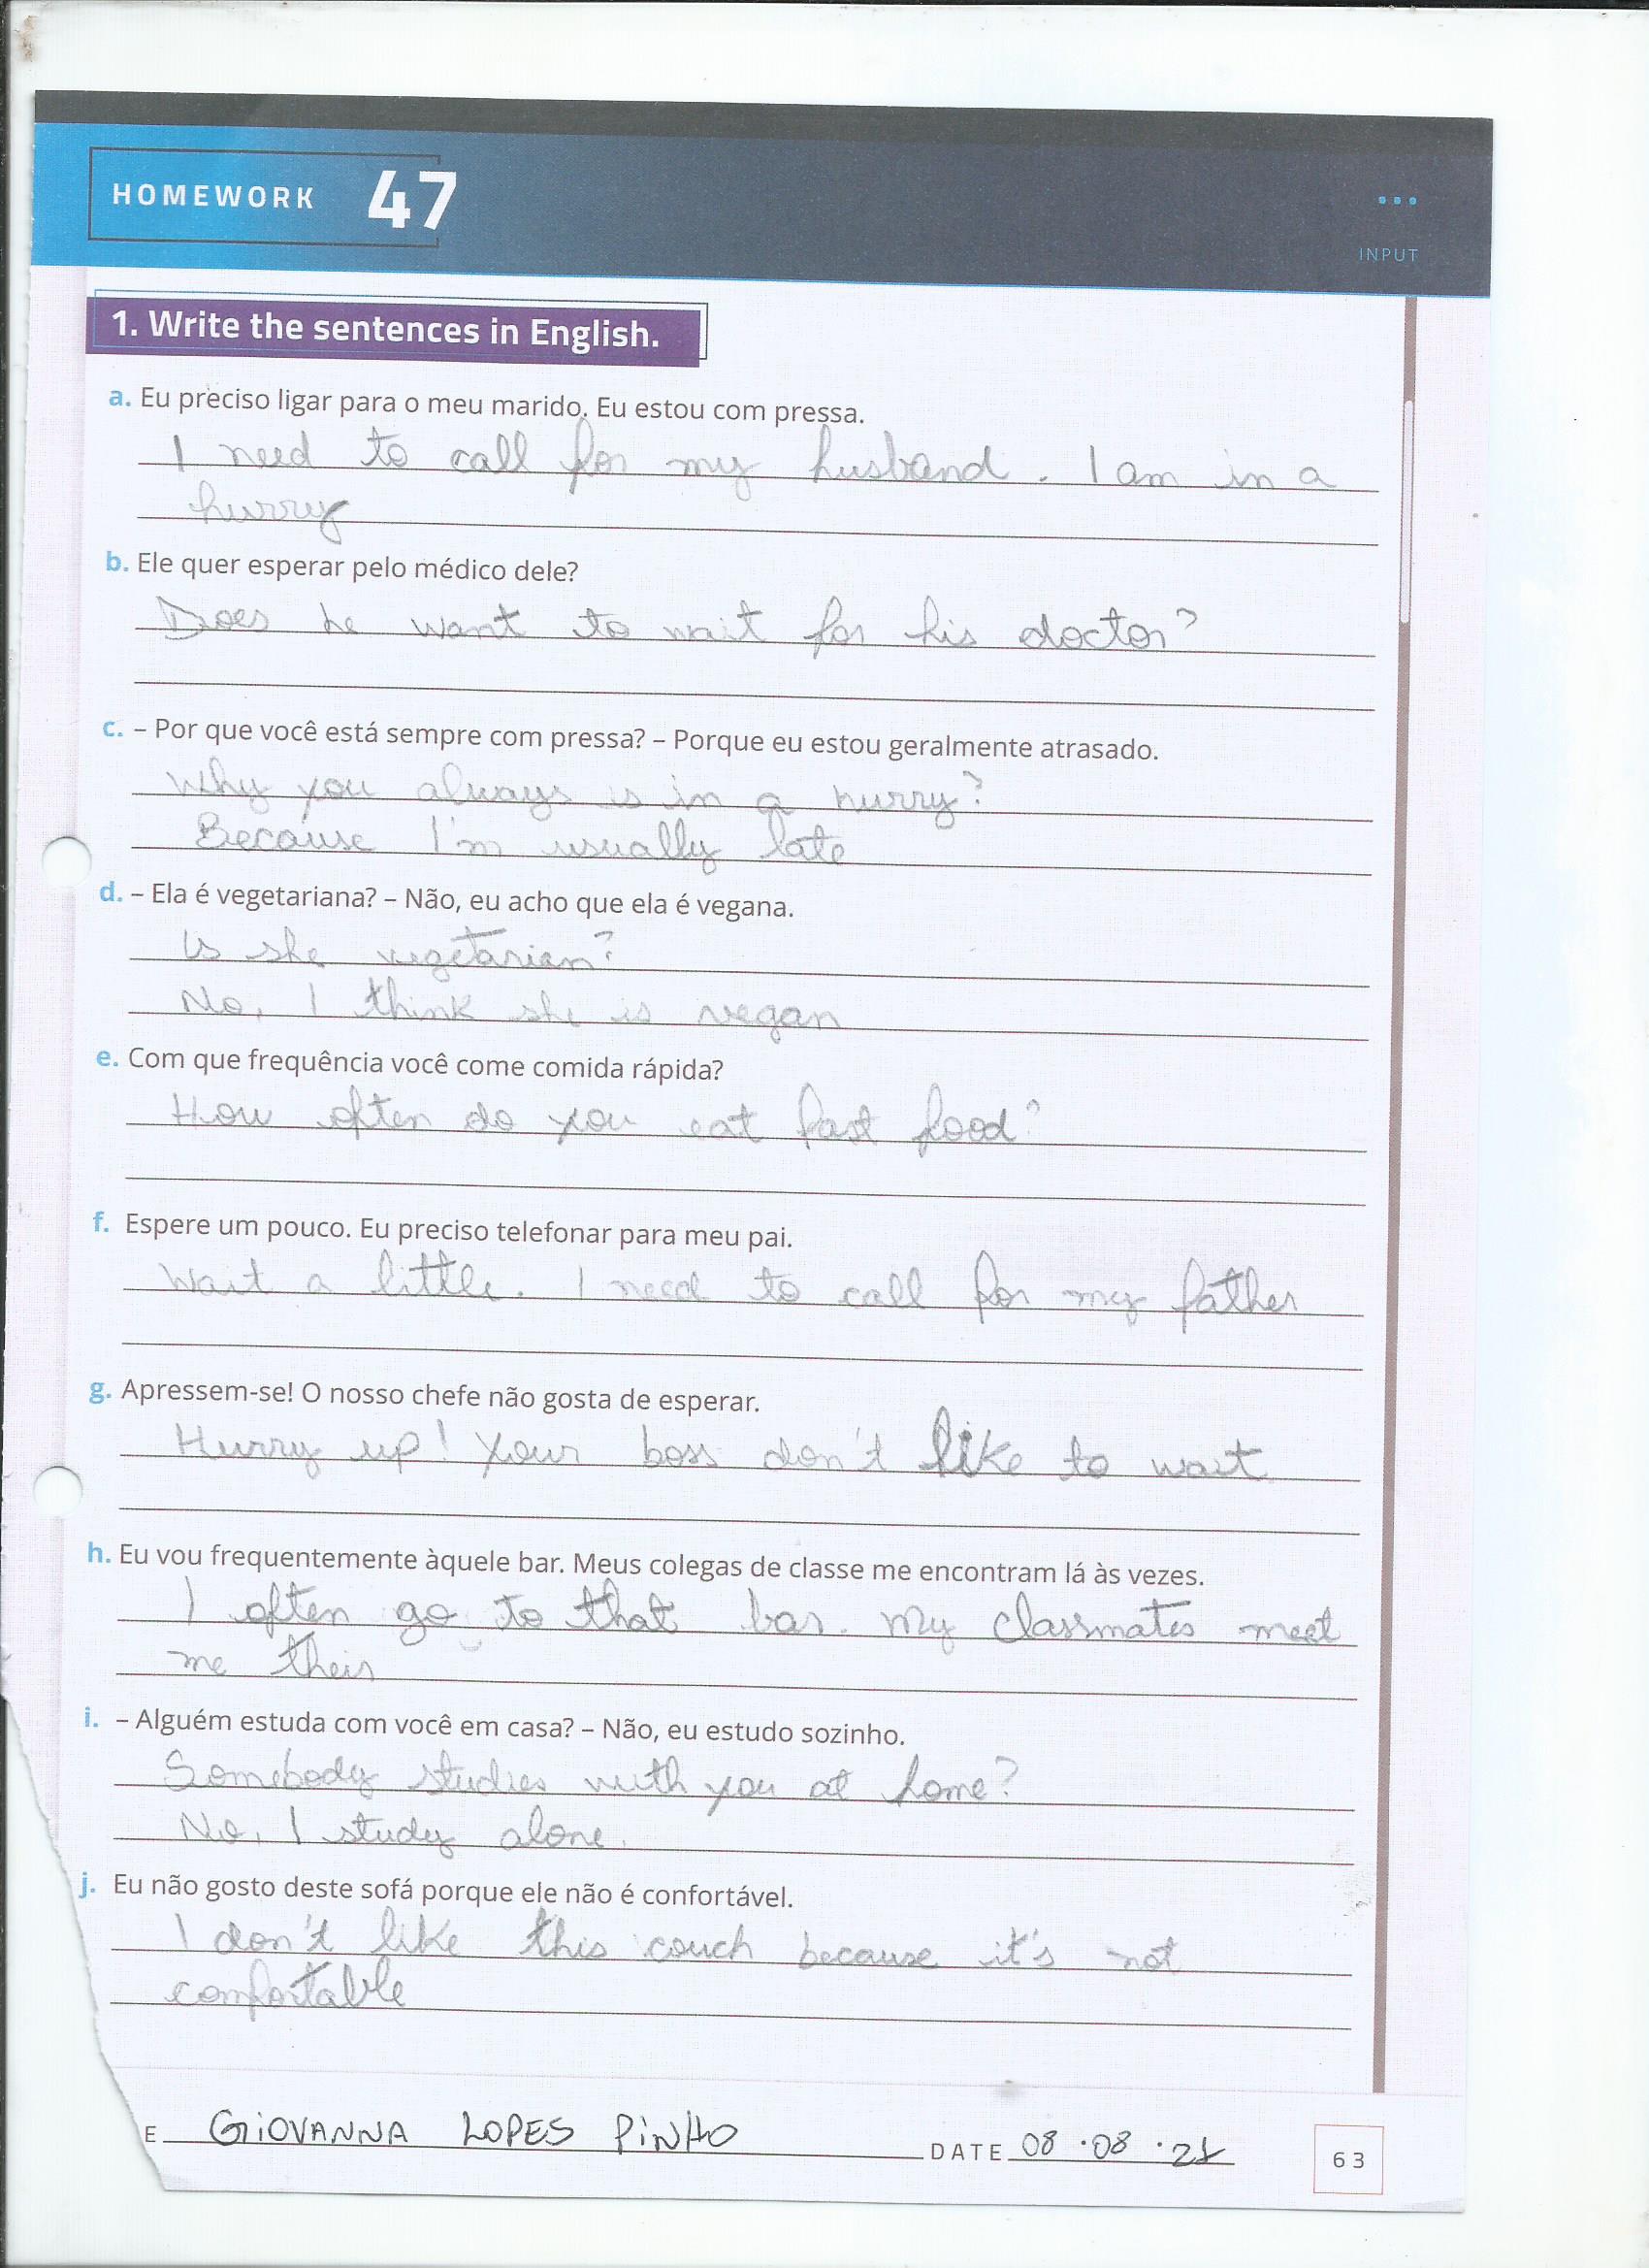 HOMEWORK 47
INPUT
1. Write the sentences in English.
a. Eu preciso ligar para o meu marido. Eu estou com pressa.
I need to call for my husband. I am in a
hurry
b. Ele quer esperar pelo médico dele?
Does he want to wait for his doctor?
c. – Por que você está sempre com pressa? – Porque eu estou geralmente atrasado.
Why you always is in a hurry?
Because I'm usually late
d. – Ela é vegetariana? – Não, eu acho que ela é vegana.
Is she vegetarian?
No, I think she is vegan
e. Com que frequência você come comida rápida?
How often do you eat fast food?
f. Espere um pouco. Eu preciso telefonar para meu pai.
Wait a little. I need to call for my father
g. Apressem-se! O nosso chefe não gosta de esperar.
Hurry up! Your boss don't like to wait
h. Eu vou frequentemente àquele bar. Meus colegas de classe me encontram lá às vezes.
I often go to that bar. My classmates meet
me their
i. – Alguém estuda com você em casa? – Não, eu estudo sozinho.
Somebody studies with you at home?
No, I study alone.
j. Eu não gosto deste sofá porque ele não é confortável.
I don't like this couch because it's not
comfortable
E GIOVANNA LOPES PINHO DATE 08.08.21
63